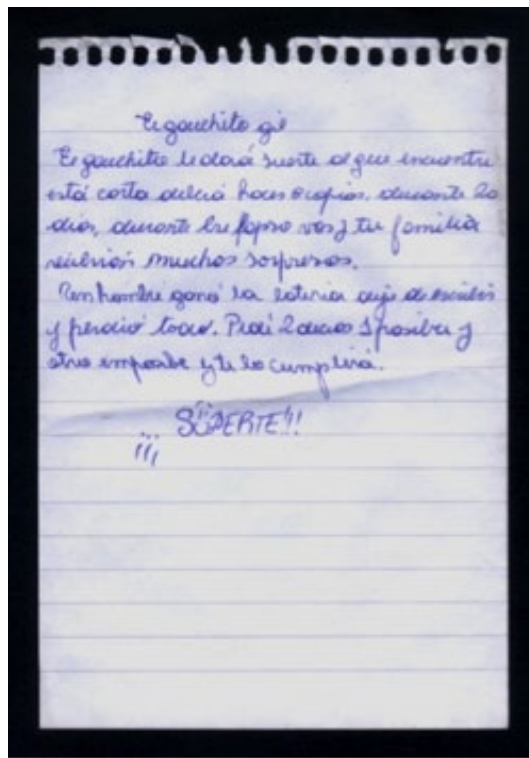 El gauchito gil
El gauchito le dará suerte al que encuentre
está carta deberá hacer copias, durante 20
días, durante ese lapso vos y tu familia
recibirán muchas sorpresas.
Un hombre ganó la lotería dejo de escribir
y perdió todo. Pedí 2 deseos 1 posible y
otro imposible y te lo cumplirá.
SUERTE!!
¡¡¡